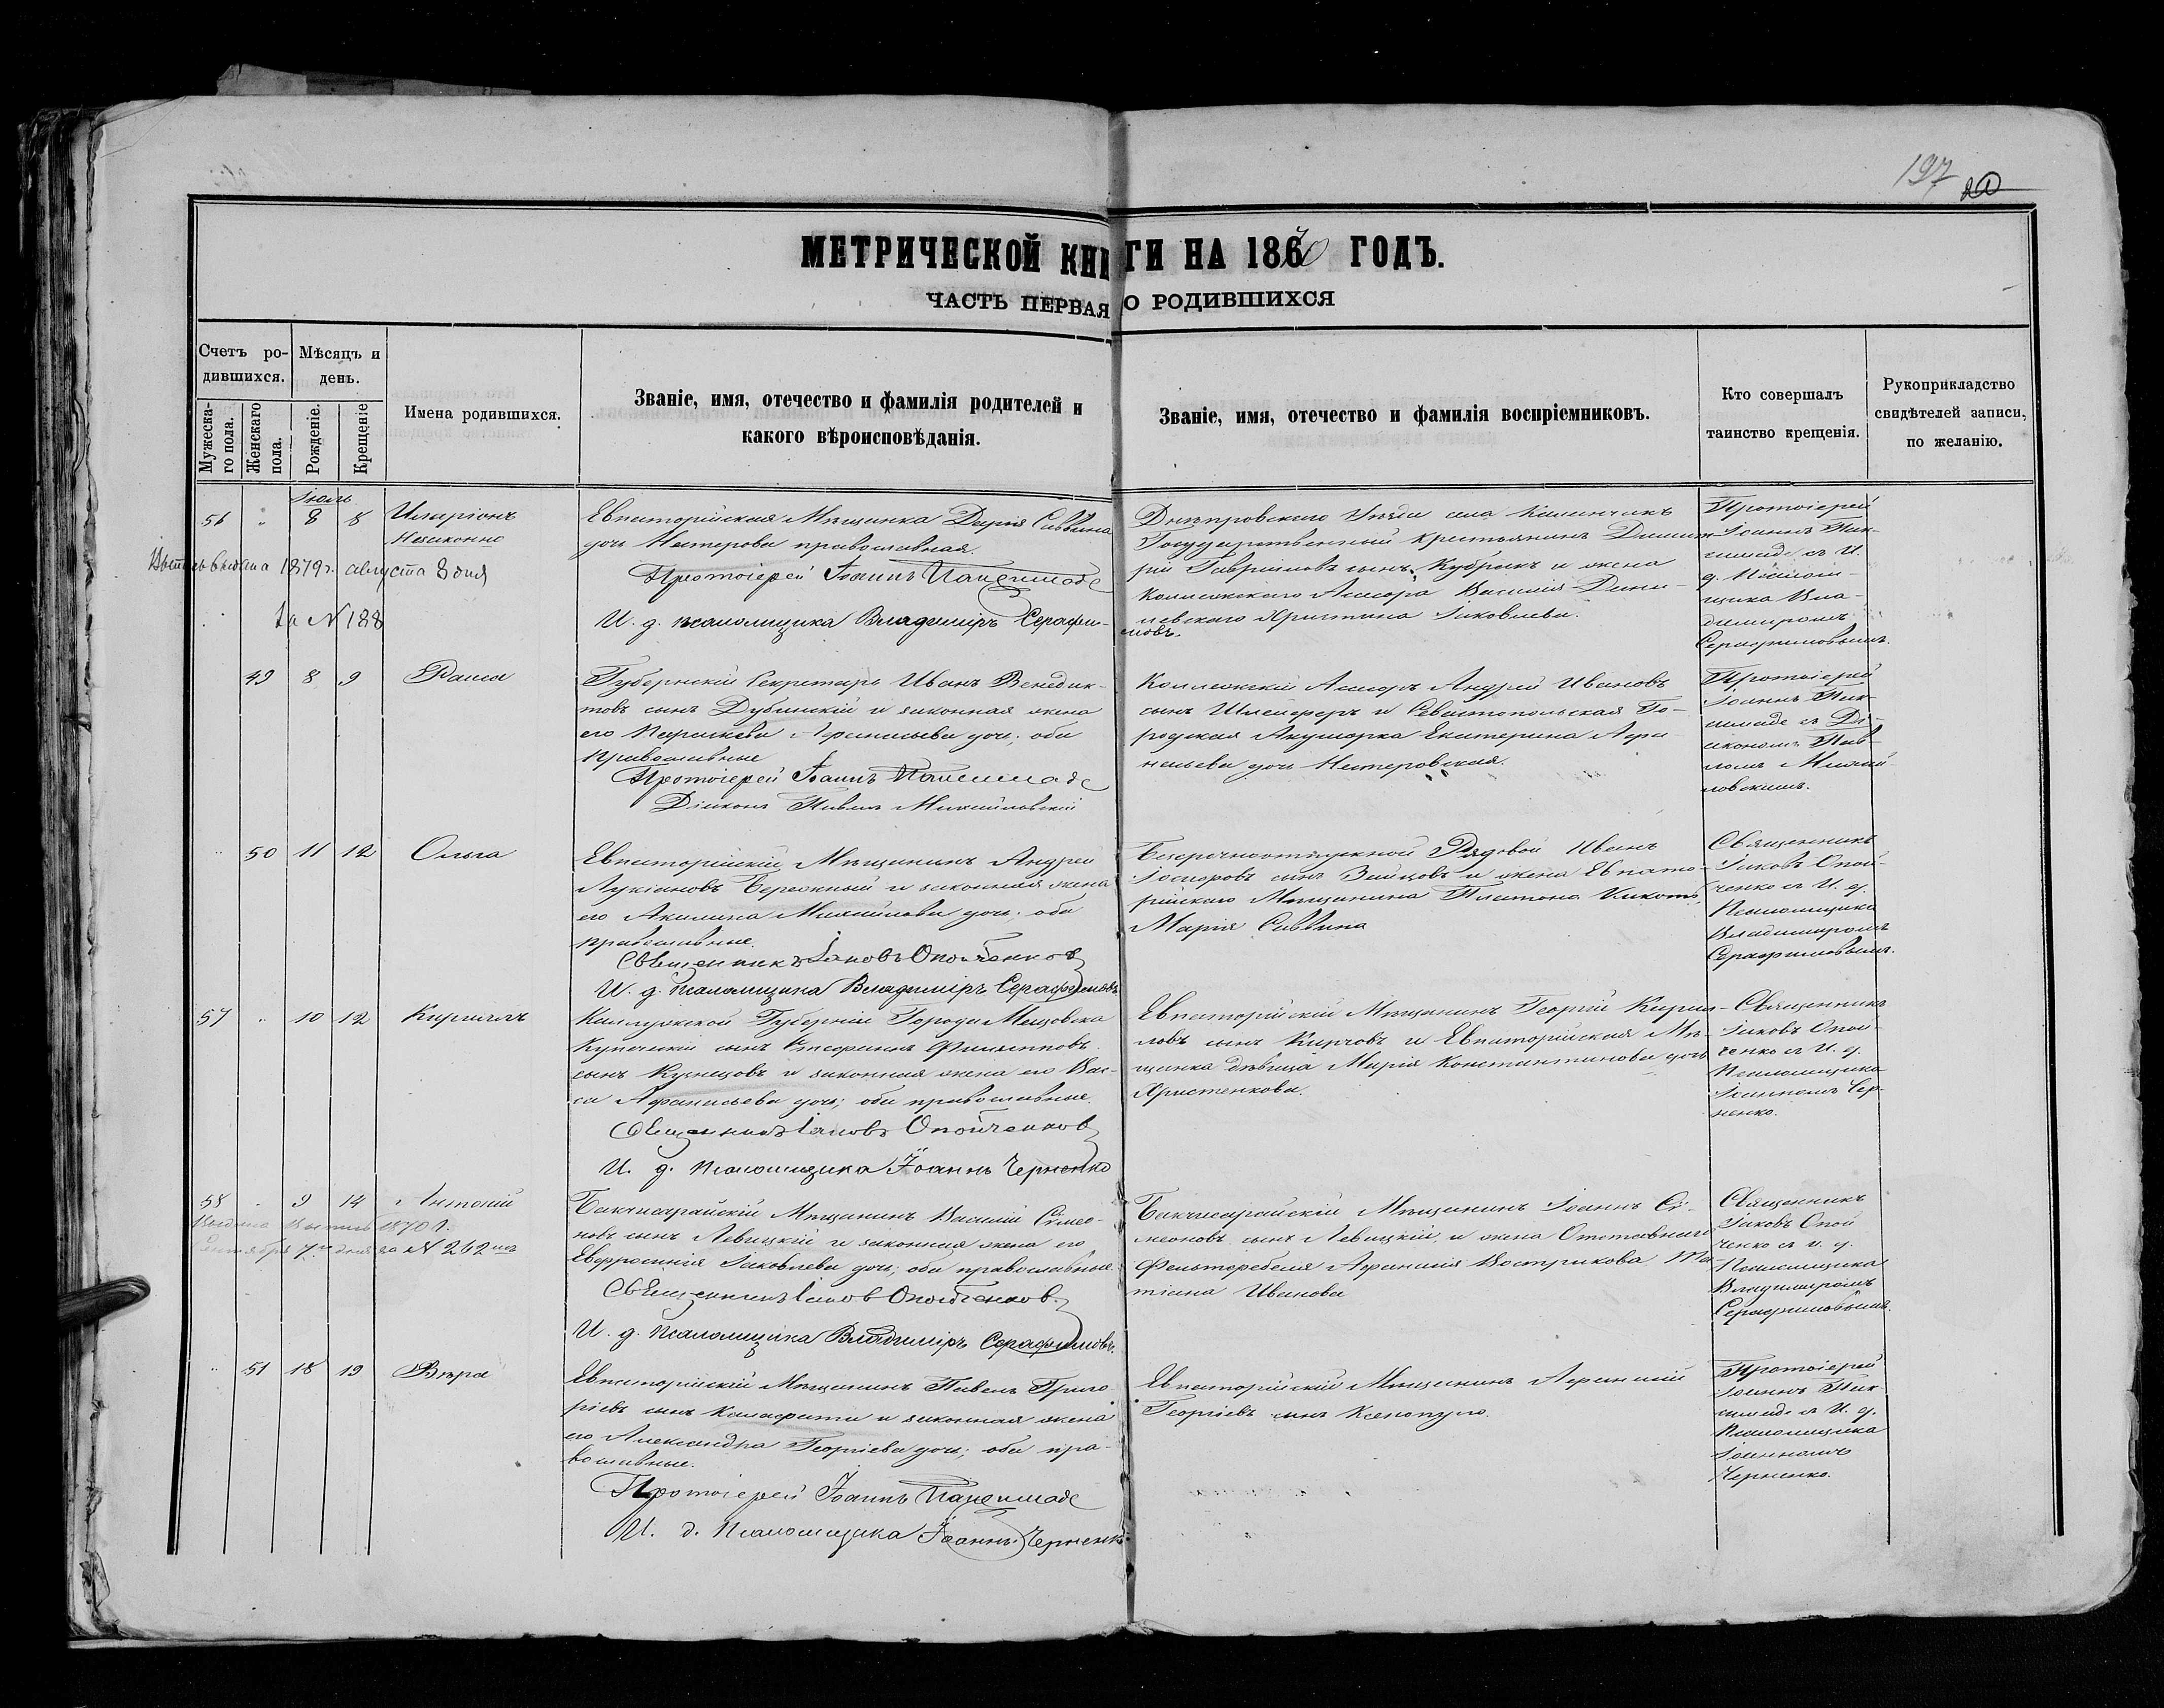 197
МЕТРИЧЕСКОЙ КНИГИ НА 1870 ГОДЪ.
ЧАСТЬ ПЕРВАЯ О РОДИВШИХСЯ
Счетъ ро-
дившихся.
Мужеска-
го пола.
Женскаго
пола.
Мѣсяцъ и
день.
Рожденіе.
Крещеніе
Имена родившихся.
Званіе, имя, отечество и фамилія родителей и
какого вѣроисповѣданія.
Званіе, имя, отечество и фамилія воспріемниковъ.
Кто совершалъ
таинство крещенія.
Рукоприкладство
свидѣтелей записи,
по желанію.
Іюль
56 " 8 8 Иларіонъ
Незаконно
1879 г. августа 8 дня
за № 188
Евпаторійская Мѣщанка Дарія Саввина
дочь Нестерова православная.
Протоіерей Іоаннъ
И. д. псаломщика Владиміръ Серафи-
мовъ.
Днѣпровскаго Уѣзда села Каланчакъ
Государственный крестьянинъ Димит-
рій Гавріиловъ сынъ Кубракъ и жена
Коллежскаго Асесора Василія
Христина Іаковлева.
Протоіерей
Іоаннъ
съ И.
д. Псалом-
щика Вла-
димиромъ
Серафимовымъ.
49 8 9 Раиса
Губернскій Секретарь Иванъ Венедик-
товъ сынъ Дубинскій и законная жена
его Параскева Афанасьева дочь; оба
православные
Протоіерей Іоаннъ
Діаконъ Павелъ Михайловскій
Коллежскій Асесоръ Андрей Ивановъ
сынъ Шлейферъ и Севастопольская Го-
родская Акушорка Екатерина Афа-
насьева дочь Нестеровская.
Протоіерей
Іоаннъ
съ Ді-
акономъ Пав-
ломъ Михай-
ловскимъ.
" 50 11 12 Ольга
Евпаторійскій Мѣщанинъ Андрей
Лукіановъ Бережный и законная жена
его Акилина Михайлова дочь; оба
православные.
Священникъ Іаковъ Опойченковъ
И. д. псаломщика Владиміръ Серафимовъ
Безсрочноотпускной Рядовой Иванъ
Іосифовъ сынъ Зайцовъ и жена Евпато-
рійскаго Мѣщанина Платона
Марія Саввина
Священникъ
Іаковъ Опой-
ченко съ И. д.
Псаломщика
Владимиромъ
Серафимовымъ.
57 " 10 12 Кириллъ
Калужской Губерніи Города Мещовска
Купеческій сынъ Стефанъ Филипповъ
сынъ Кузнецовъ и законная жена его Вас-
са Афанасьева дочь; оба православные.
Священникъ Іаковъ Опойченковъ
И. д. псаломщика Іоаннъ Черненко
Евпаторійскій Мѣщанинъ Георгій Кирил-
ловъ сынъ Кирговъ и Евпаторійская Мѣ-
щанка дѣвица Марія Константинова дочь
Христенкова.
Священникъ
Іаковъ Опой-
ченко съ И. д.
Псаломщика
Іоанномъ Чер-
ненко.
58 " 9 14 Антоній
Выдана выпись 1870 г.
Сентября 7го дня за № 262
Бахчисарайскій Мѣщанинъ Василій Симео-
новъ сынъ Левицкій и законная жена его
Евфросинія Іаковлева дочь; оба православные.
Священникъ Іаковъ Опойченковъ
И. д. псаломщика Владиміръ Серафимовъ.
Бахчисарайскій Мѣщанинъ Іоаннъ Си-
меоновъ сынъ Левицкій и жена Отставнаго
Фельтфебеля Афанасія Вострикова Та-
тіана Иванова
Священникъ
Іаковъ Опой
ченко съ и. д.
Псаломщика
Владимиромъ
Серафимовымъ.
" 51 18 19 Вѣра
Евпаторійскій Мѣщанинъ Павелъ Григо-
ріевъ сынъ Калафати и законная жена
его Александра Георгіева дочь; оба пра-
вославные.
Протоіерей Іоаннъ
И. д. Псаломщика Іоаннъ Черненко
Евпаторійскій Мѣщанинъ Афанасій
Георгіевъ сынъ Ксенопуло.
Протоіерей
Іоаннъ
съ И. д.
Псаломщика
Іоанномъ
Черненко.